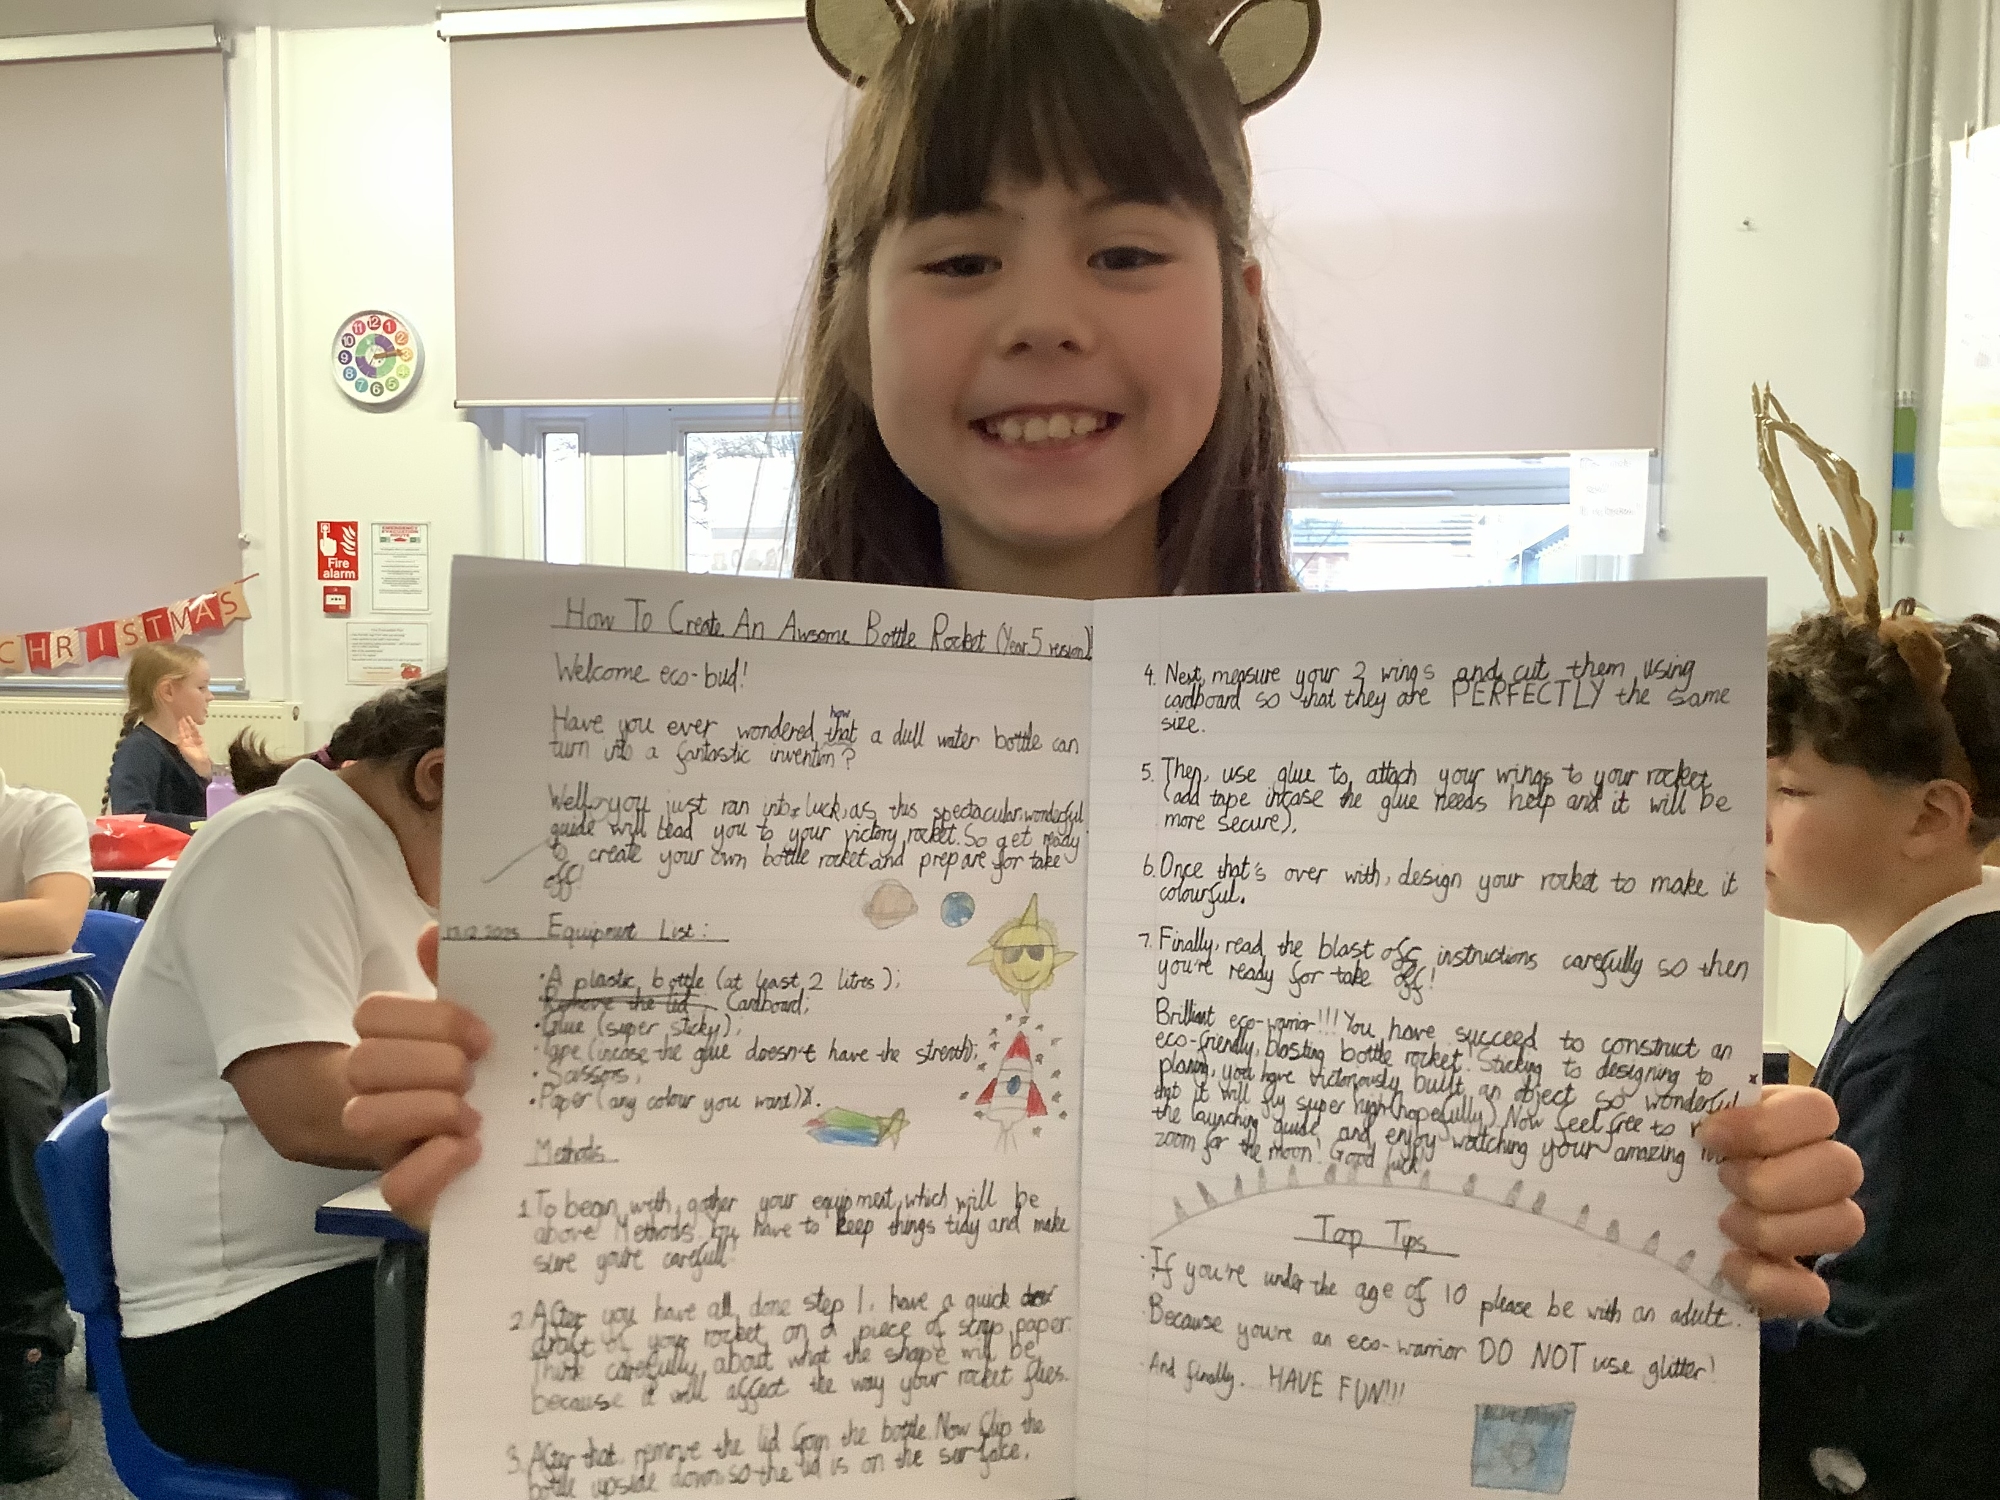 How To Create An Awsome Bottle Rocket (Year 5 resion)
Welcome eco-bud!
Have you ever wondered how that a dull water bottle can
turn into a fantastic invention?
Well for you just ran into luck, as this spectacular, wonderful
guide will lead you to your victory rocket. So get ready
to create your own bottle rocket and prepare for take
off!
Equipment List:
• A plastic bottle (at least 2 litres);
Remove the lid Cardboard;
• Glue (super sticky);
• Tape (incase the glue doesn't have the strenth);
• Scissors;
• Paper (any colour you want).
Methods
1. To begin with, gather your equipment, which will be
above Methods. You have to keep things tidy and make
sure you're carefull!
2. After you have all done step 1, have a quick
draft of your rocket on a piece of scrap paper.
Think carefully about what the shape will be
because it will affect the way your rocket flies.
3. After that, remove the lid from the bottle. Now flip the
bottle upside down so the lid is on the surface.
4. Next, measure your 2 wings and cut them using
cardboard so that they are PERFECTLY the same
size.
5. Then, use glue to attach your wings to your rocket
(add tape incase the glue needs help and it will be
more secure).
6. Once that's over with, design your rocket to make it
colourful.
7. Finally, read the blast off instructions carefully so then
you're ready for take off!
Brilliant eco-warrior!!! You have succeed to construct an
eco-friendly, blasting bottle rocket! Sticking to designing to
planing, you have victoriously built an object so wonderful
that it will fly super high (hopefully). Now feel free to
the launching guide and enjoy watching your amazing
zoom for the moon! Good luck!
Top Tips
• If you're under the age of 10 please be with an adult.
• Because you're an eco-warrior DO NOT use glitter!
• And finally, HAVE FUN!!!
CHRISTMAS
Fire
alarm
EMERGENCY
EVACUATION
12 1 2 3 4 5 6 7 8 9 10 11